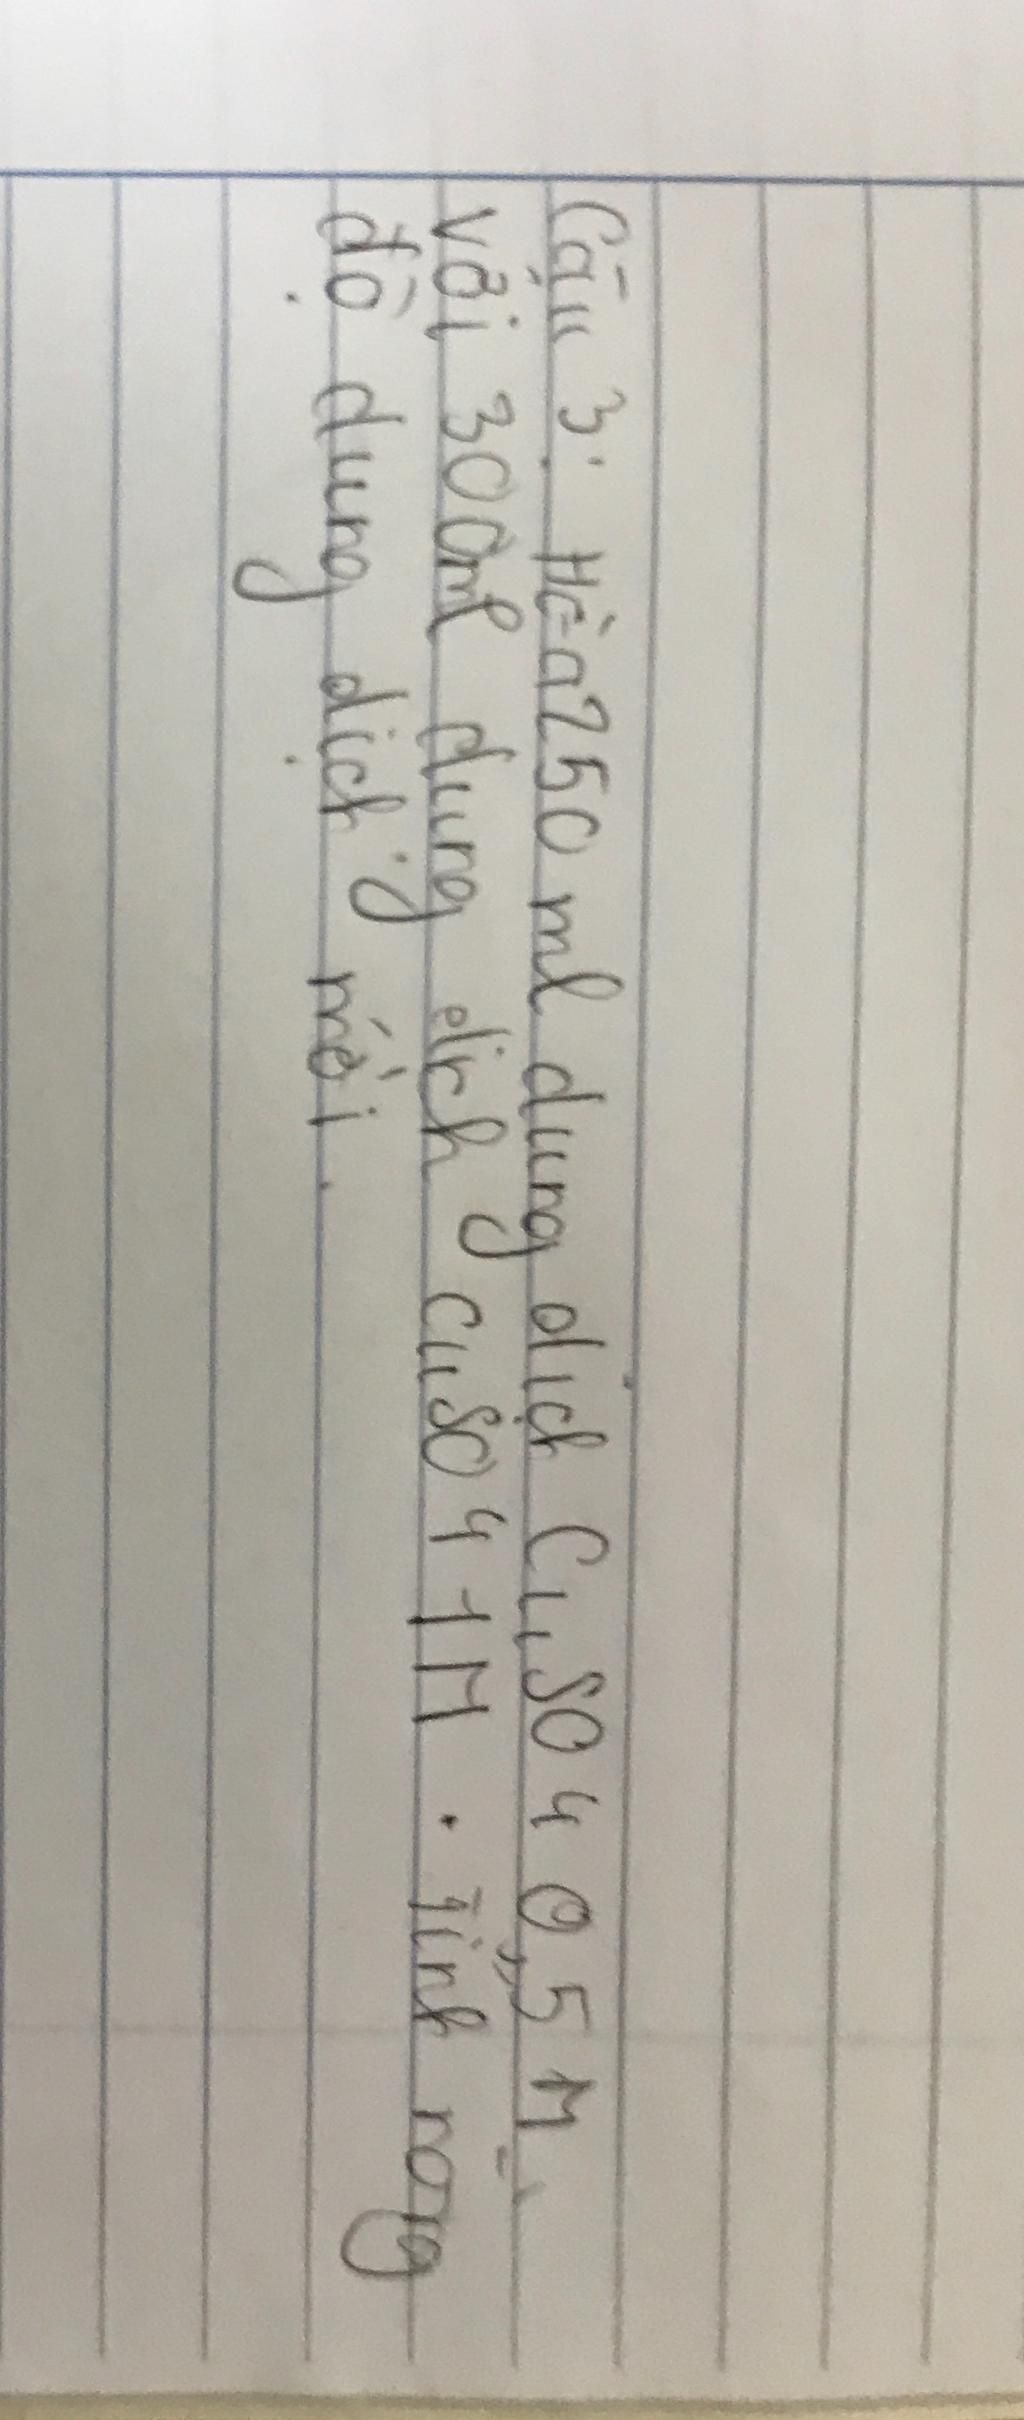 Câu 3: Hòa 250 ml dung dịch CuSO4 0,5M
với 300ml dung dịch CuSO4 1M. Tính nồng
độ dung dịch mới.